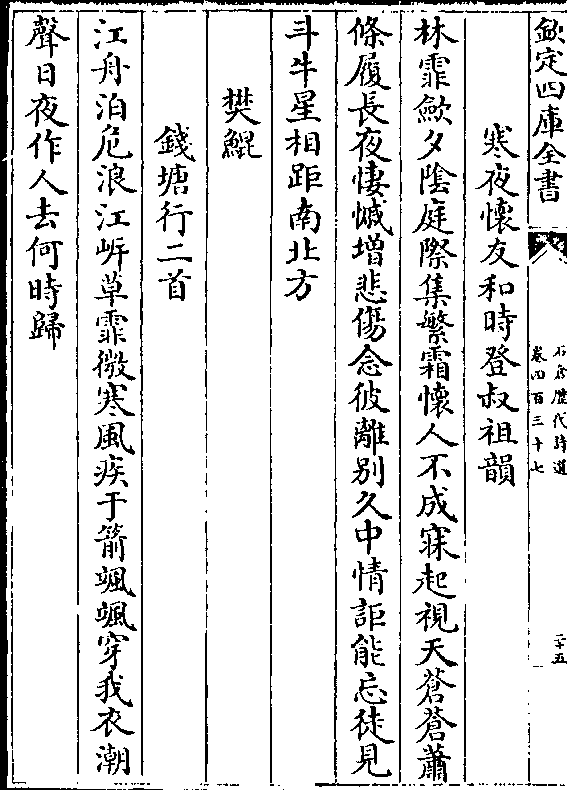 欽定四庫全書
石倉歷代詩選
卷四百三十七
二十五
寒夜懷友和時登叔祖韻
林霏歛夕陰庭際集繁霜懷人不成寐起視天蒼蒼蕭
條履長夜悽慽增悲傷念彼離別久中情詎能忘徒見
斗牛星相距南北方
樊鯤
錢塘行二首
江舟泊危浪江㟁草霏微寒風疾于箭颯颯穿我衣潮
聲日夜作人去何時歸